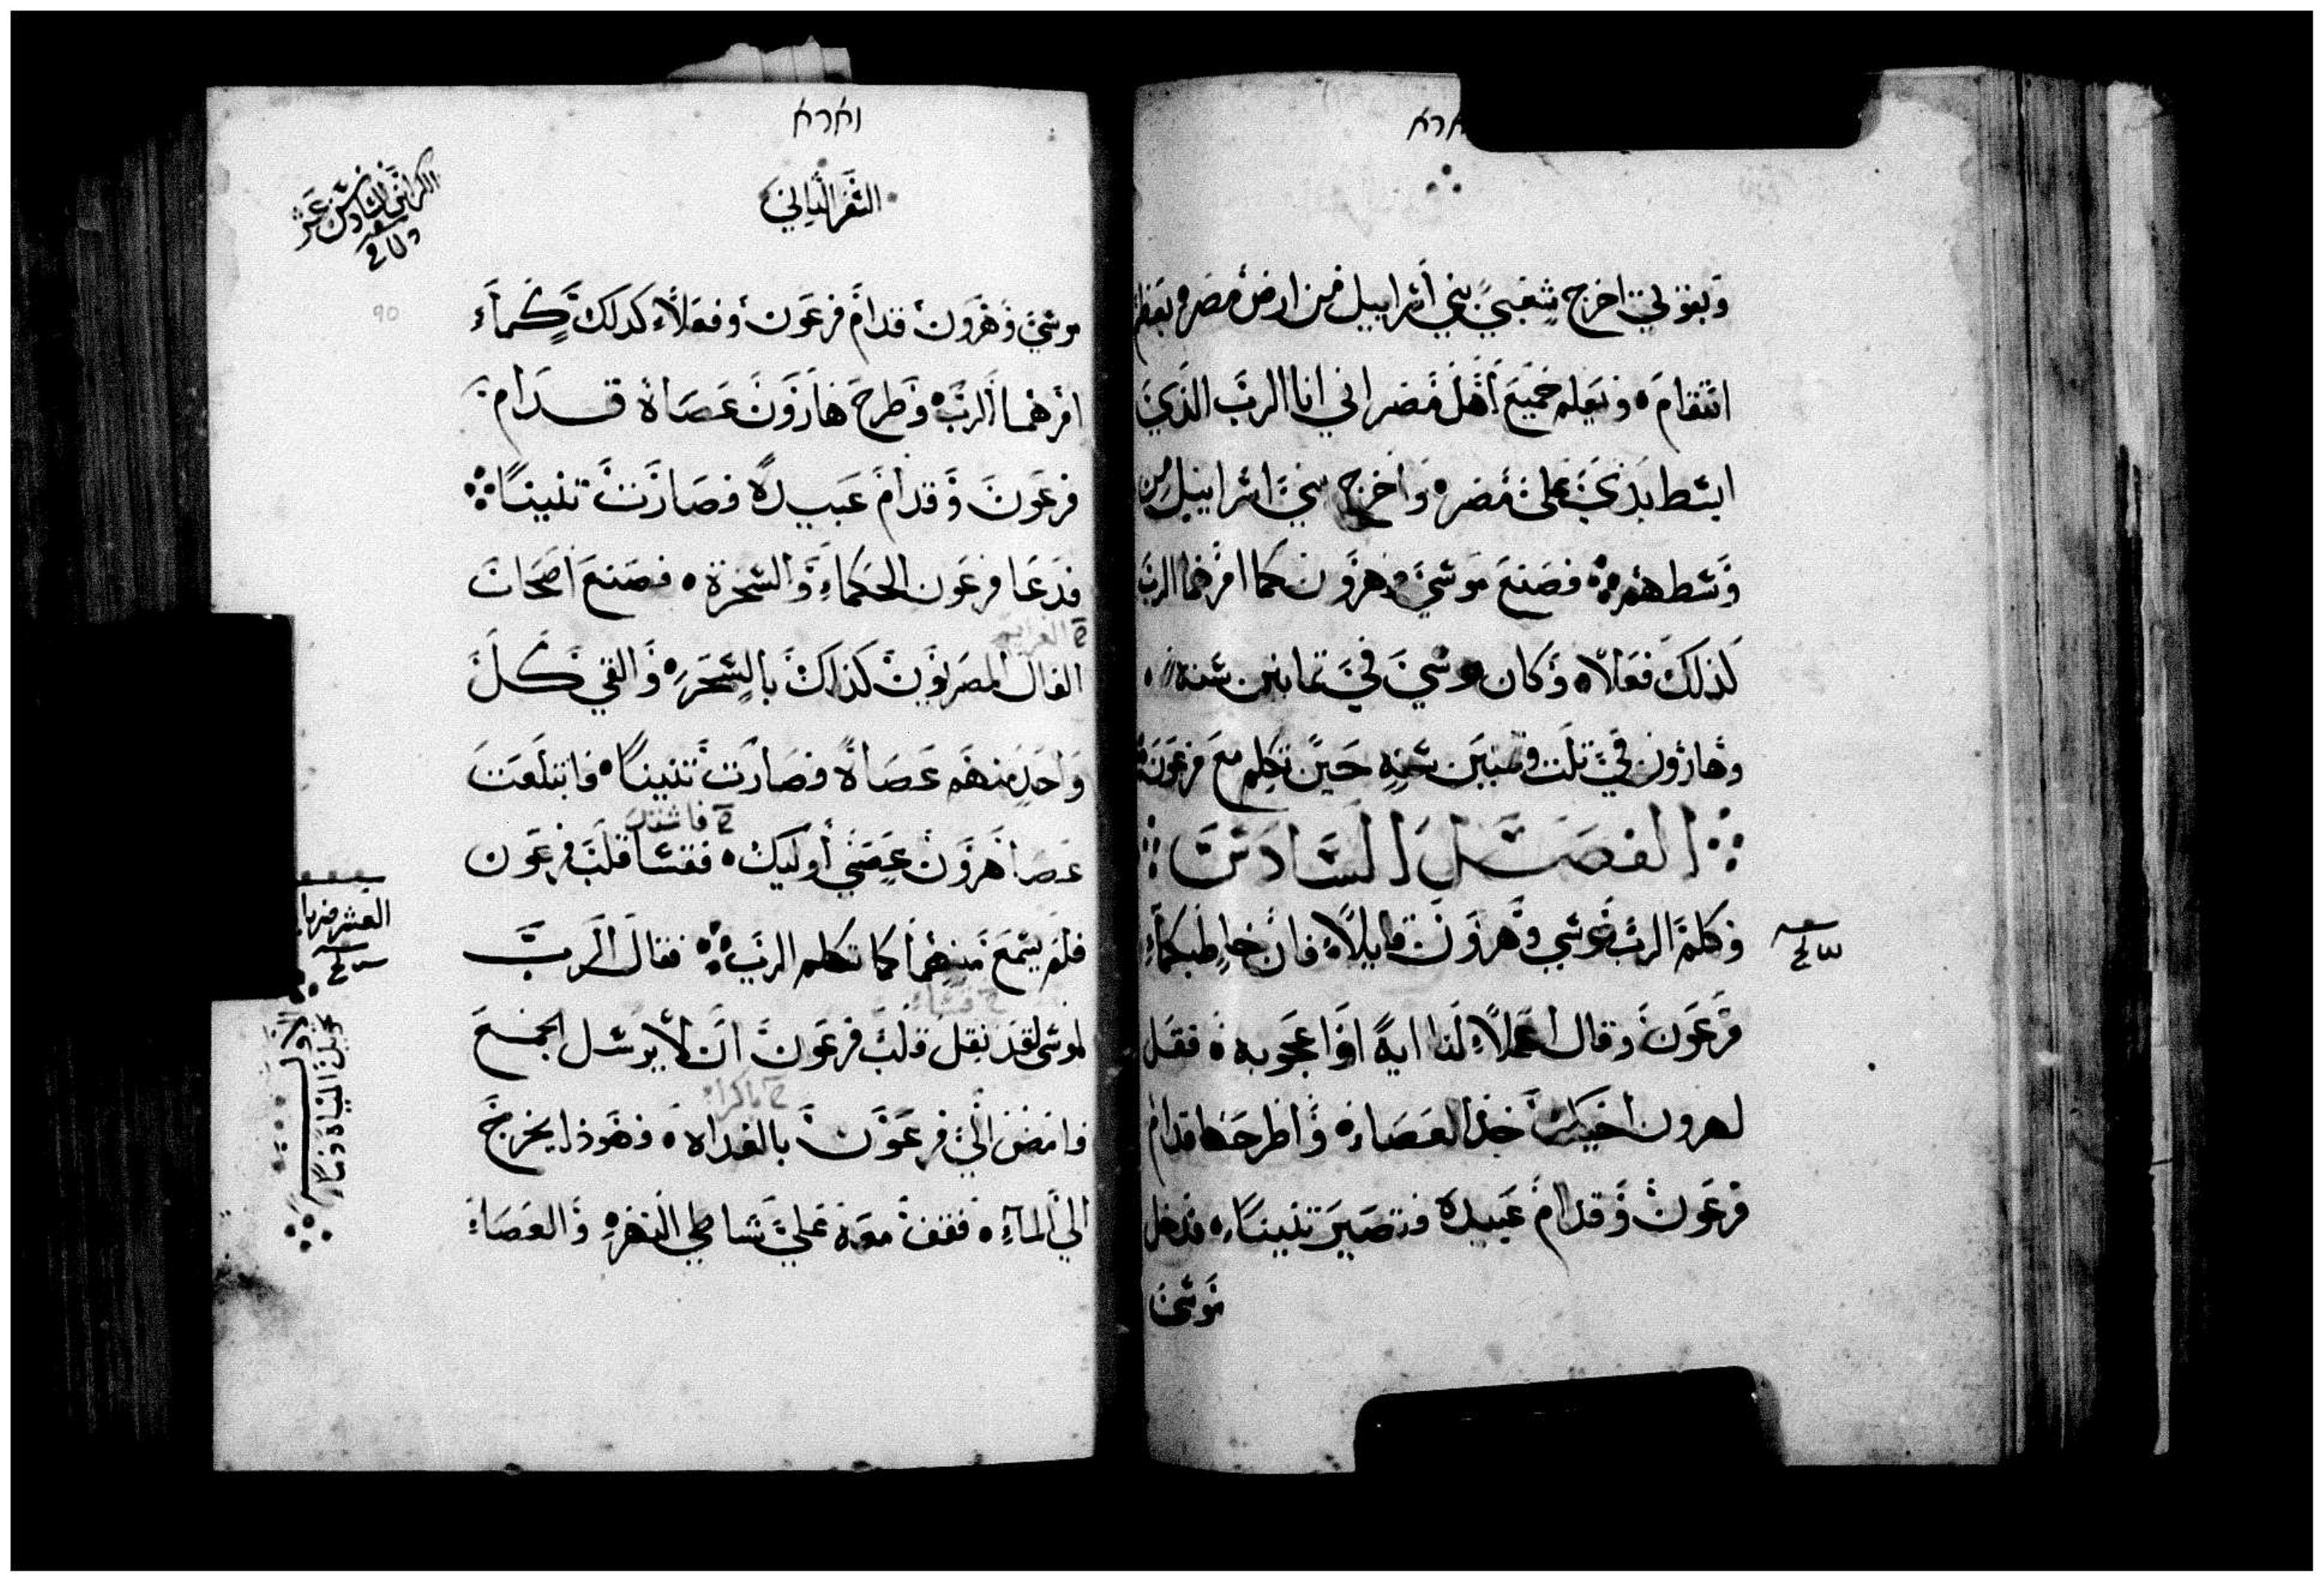 וארא
وبقوتي اخرج شعبي بني اسراييل من ارض مصر بعظم
انتقام ويعلم جميع اهل مصر اني انا الرب الذي
ابسط يدي على مصر واخرج بني اسراييل من
وسطهم فصنع موسي وهرون كما امرهما الرب
كذلك فعلا وكان موسي في تمانين سنه
وهارون في تلت وتمنين سنه حين تكلم مع فرعون
الفصل السادس
وكلم الرب موسي وهرون قايلا فان خاطبكما
فرعون وقال اعملا لنا اية او اعجوبه فقل
لهرون اخيك خذ العصاه واطرحها قدام
فرعون وقدام عبيده فتصير تنينا فدخل
موسى
וארא
السفر التاني
الكراس السادس عشر
90
موسي وهرون قدام فرعون وفعلا كدلك كما
امرهما الرب وطرح هارون عصاه قدام
فرعون وقدام عبيده فصارت تنينا
فدعا فرعون الحكماء والسحرة فصنع اصحاب
الفال المصريون كذلك بالسحر والقي كل
واحد منهم عصاه فصارت تنينا فابتلعت
عصا هرون عصي أوليك فقسا قلب فرعون
فلم يسمع منهما كما تكلم الرب فقال الرب
لموسى لقد ثقل قلب فرعون ان لا يرسل الجمع
فامض الي فرعون بالغداه فهوذا يخرج
الي الماء فقف معه علي شاطي النهر والعصاة